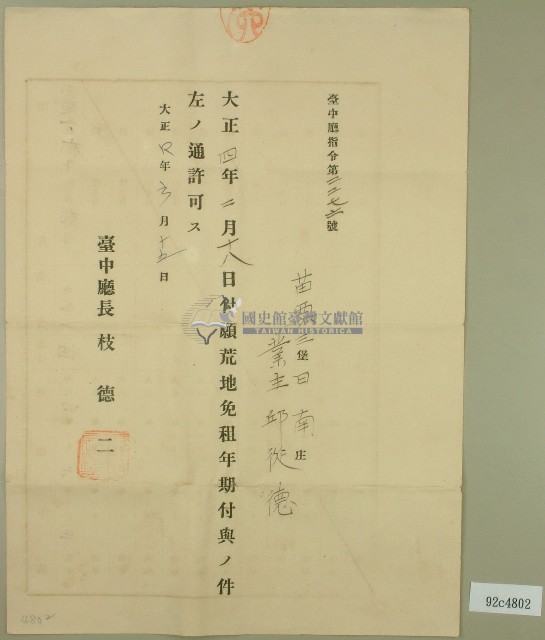 臺中廳指令第二二七六號
苗栗三堡日南庄
業主 邱從德
大正四年二月十八日付願荒地免租年期付與ノ件
左ノ通許可ス
大正四年 月十五日
臺中廳長 枝 德 二
國史館臺灣文獻館
TAIWAN HISTORICA
4802
92c4802